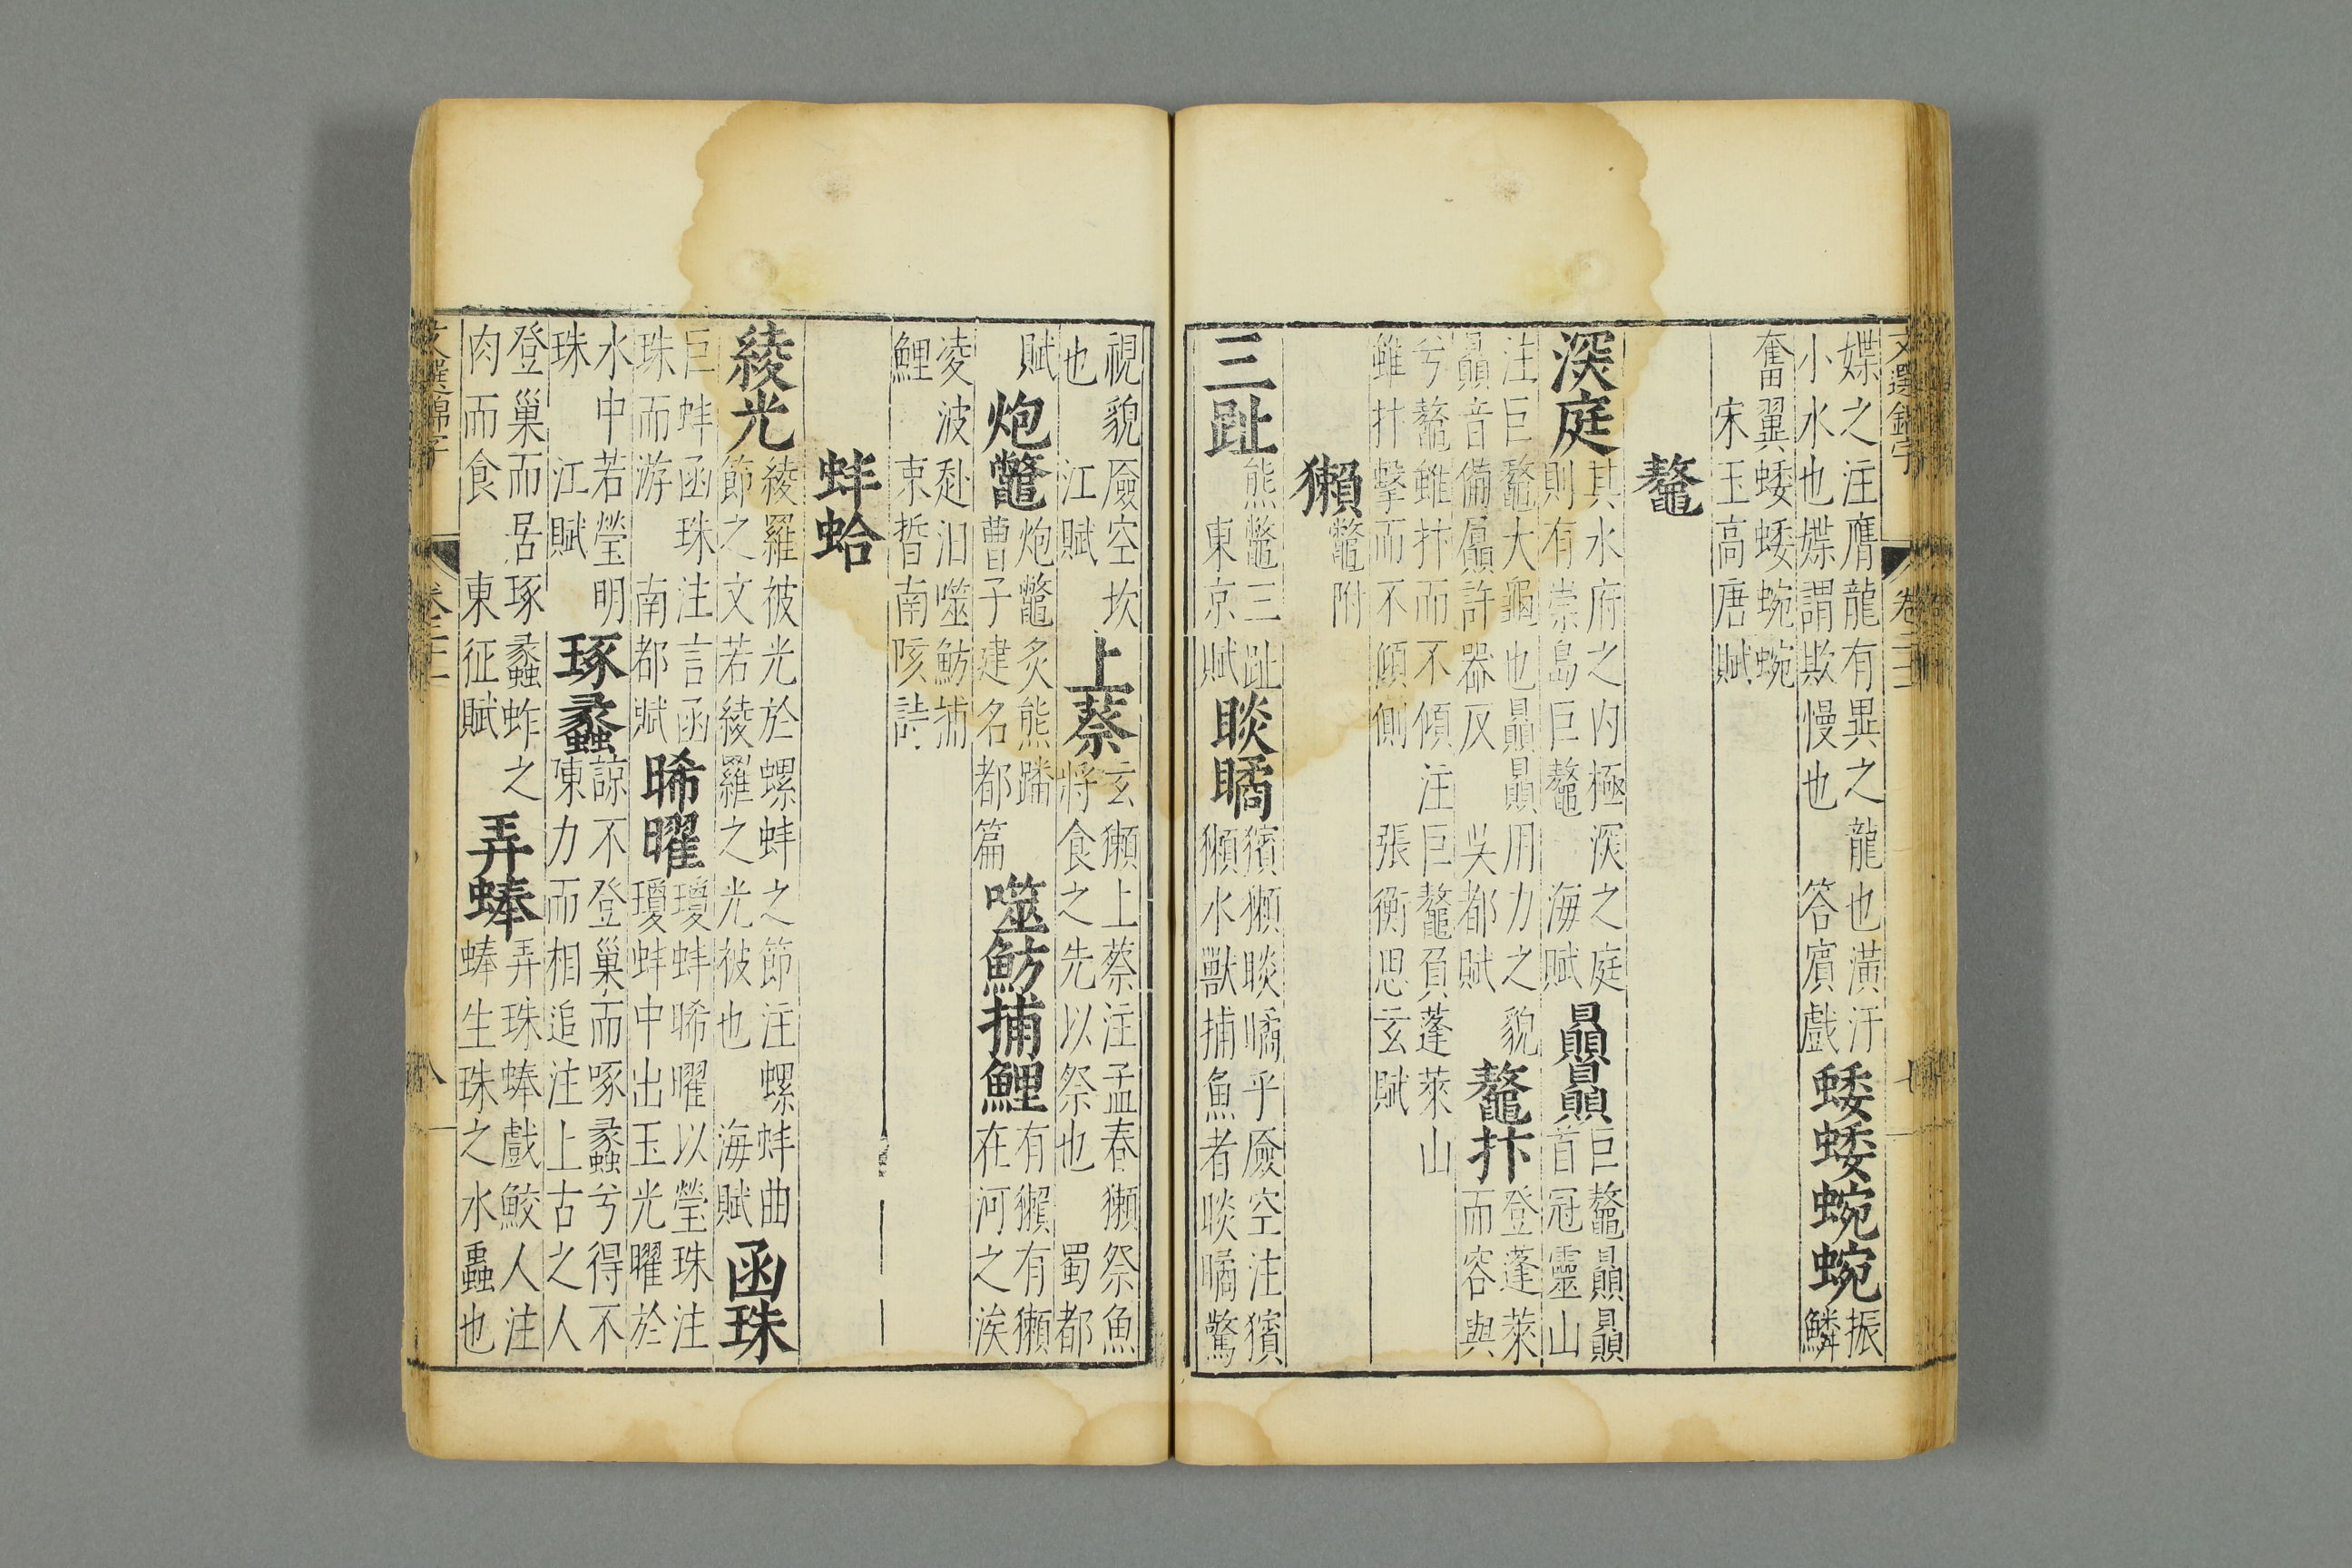 文選錦字 卷二十一 七
媟之注應龍有異之龍也潢汙
小水也媟謂欺慢也 答賓戲
蜲蜲蜿蜿 振鱗
奮翼蜲蜲蜿蜿
宋玉高唐賦
鼇
深庭 其水府之內極深之庭
則有崇島巨鼇 海賦
贔屭 巨鼇贔屭
首冠靈山
注巨鼇大龜也贔屭用力之貌
贔音備屭許器反 吳都賦
鼇抃 登蓬萊
而容與
兮鼇雖抃而不傾注巨鼇負蓬萊山
雖抃擊而不傾側 張衡思玄賦
獺 鼈附
三趾 熊鼈三趾
東京賦
睒瞲 獱獺睒瞲乎廞空注獱
獺水獸捕魚者睒瞲驚
視貌廞空坎
也 江賦
上蔡 玄獺上蔡注孟春獺祭魚
將食之先以祭也 蜀都
賦
炮鼈 炮鼈炙熊蹯
曹子建名都篇
噬魴捕鯉 有獺有獺
在河之涘
凌波赴汨噬魴捕
鯉 束晳南陔詩
蚌蛤
綾光 綾羅被光於螺蚌之節注螺蚌曲
節之文若綾羅之光被也 海賦
函珠
巨蚌函珠注言函
珠而游 南都賦
晞曜 瓊蚌晞曜以瑩珠注
瓊蚌中出玉光曜於
水中若瑩明
珠 江賦
琢蠡 諒不登巢而啄蠡兮得不
陳力而相追注上古之人
登巢而居琢蠡蚱之
肉而食 東征賦
弄蜯 弄珠蜯戲鮫人注
蜯生珠之水蟲也
文選錦字 卷二十一 八